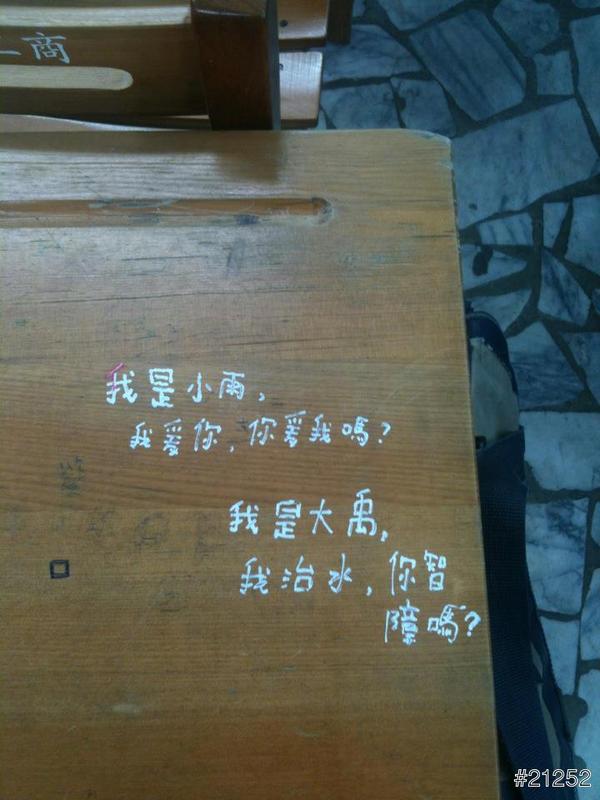 工商
我是小雨，
我爱你，你爱我嗎？
我是大禹，
我治水，你智
障嗎？
#21252